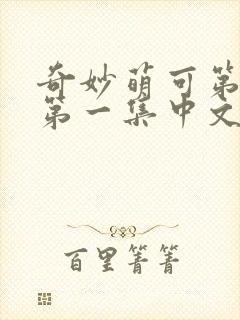 奇妙萌可第
第一集中文
百里菁菁